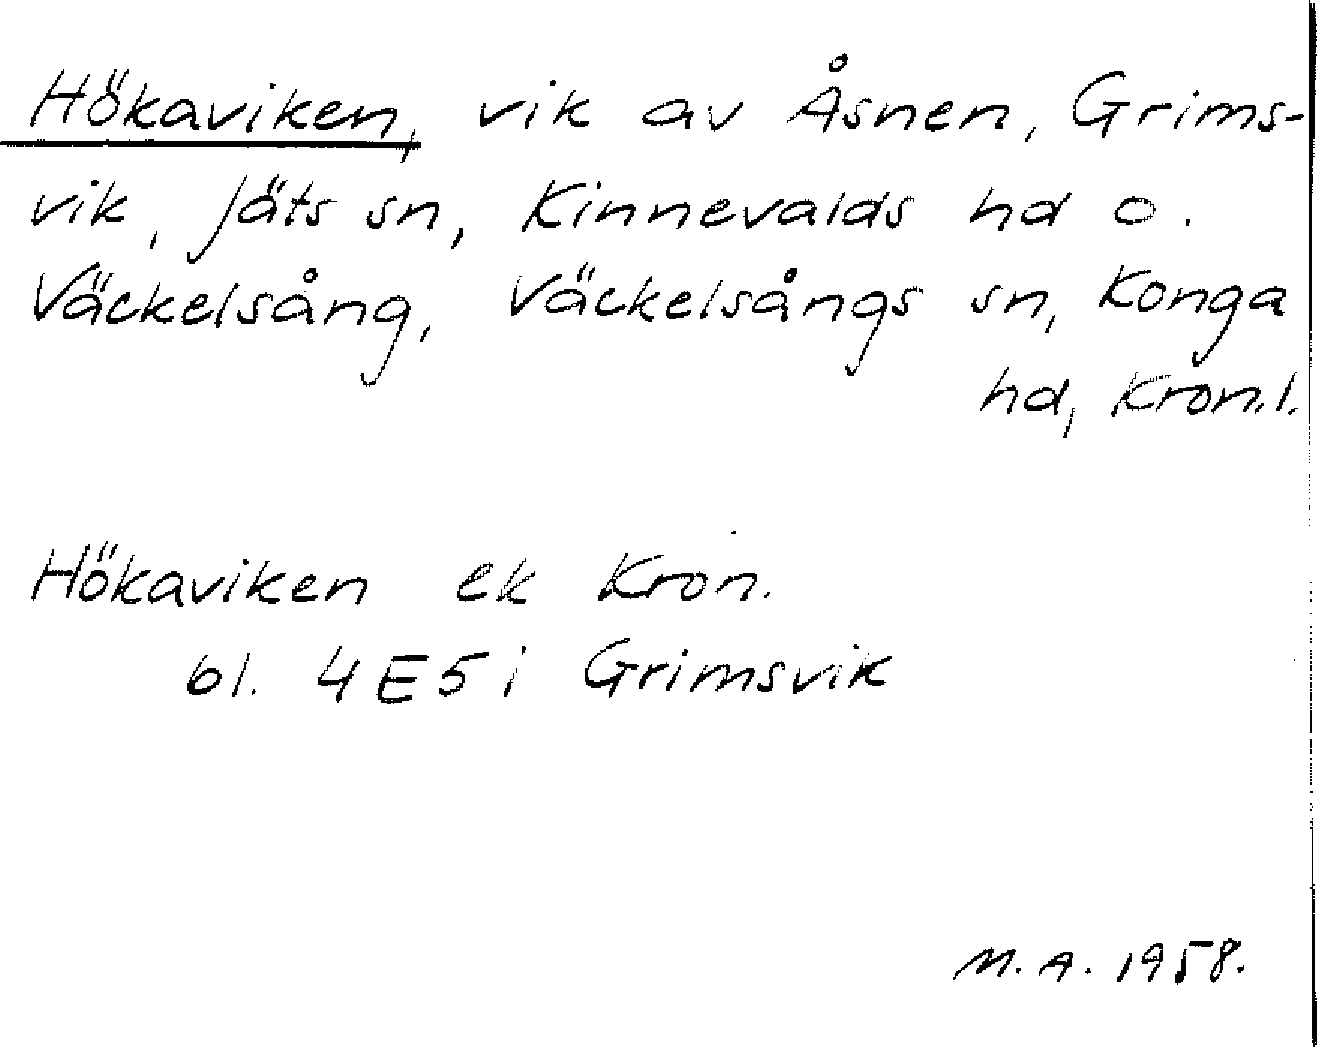 Hökaviken, vik av Åsnen, Grims-
vik, Jäts sn, Kinnevalds hd o.
Väckelsång, Väckelsångs sn, Konga
hd, Kron.l.
Hökaviken ek Kron.
bl. 4 E 5 i Grimsvik
M. A. 1958.